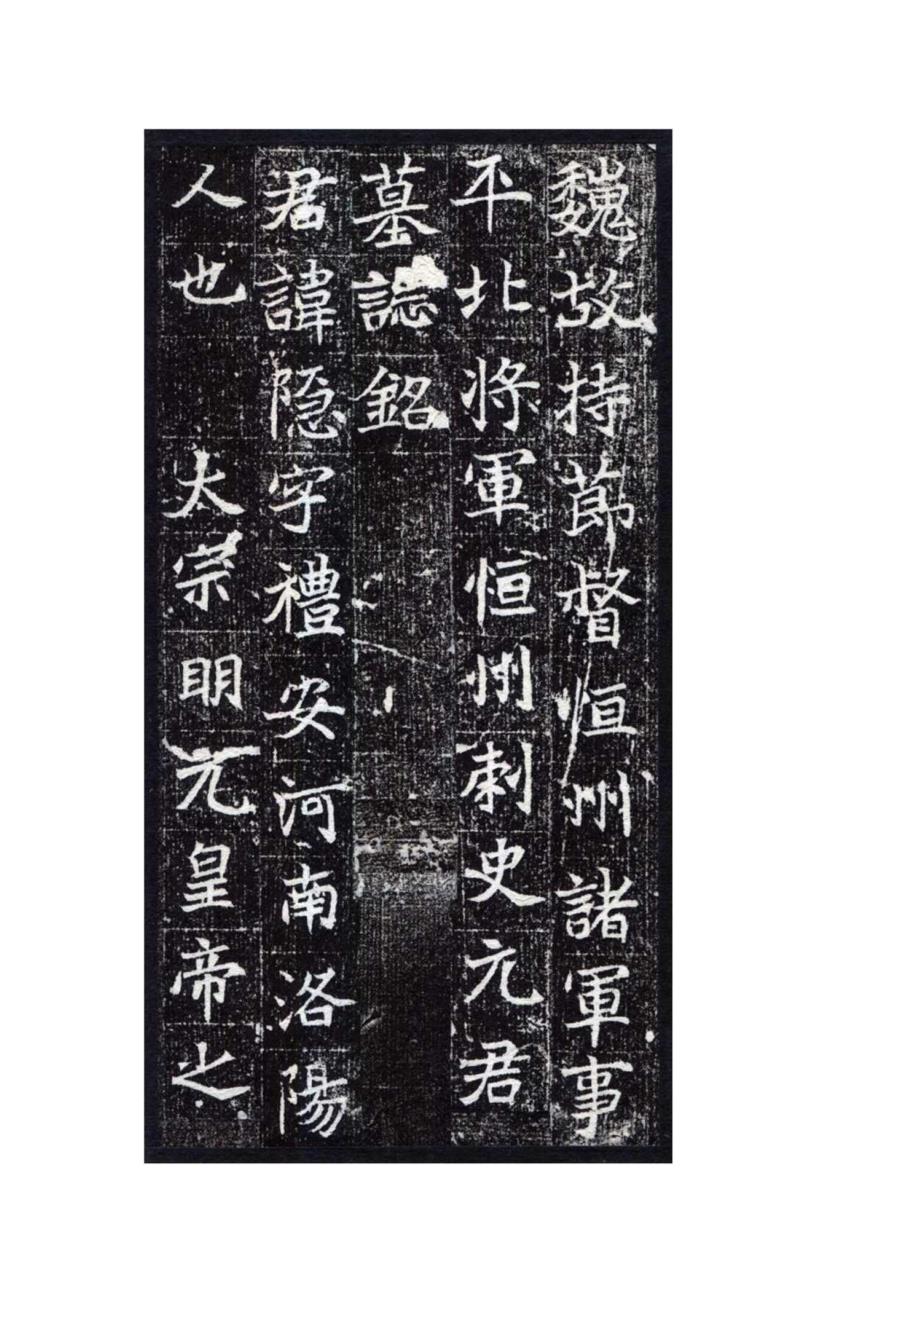 魏故持節督恒州諸軍事
平北將軍恒州刺史元君
墓誌銘
君諱隐字禮安河南洛陽
人也 太宗明元皇帝之